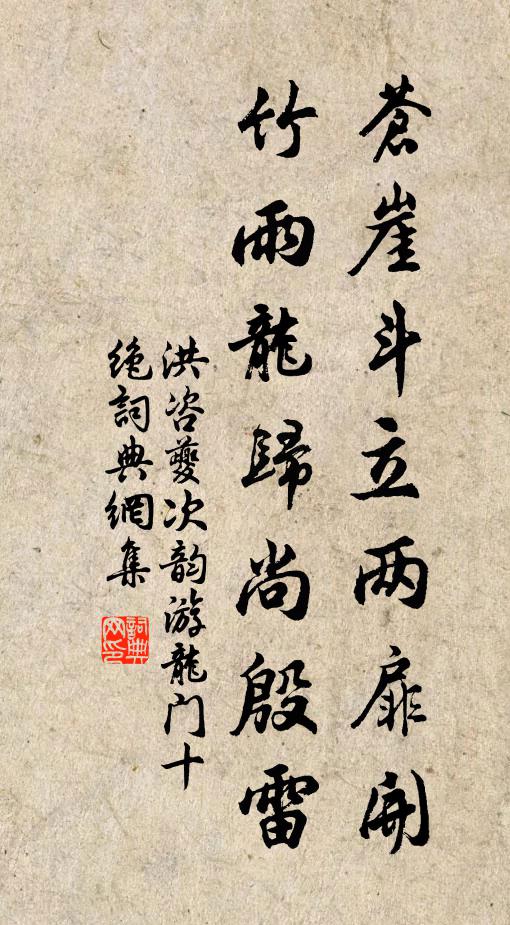 蒼崖斗立两扉開
竹雨龍歸尚殷雷
洪咨夔次韵游龍门十
绝詞典網集
詞典网印